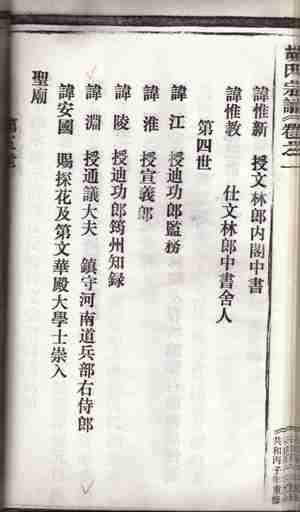 胡氏宗譜 卷之一
諱惟新 授文林郎內閣中書
諱惟教 仕文林郎中書舍人
第四世
諱江 授迪功郎監務
諱淮 授宣義郎
諱陵 授迪功郎筠州知錄
諱淵 授通議大夫 鎮守河南道兵部右侍郎
諱安國 賜探花及第文華殿大學士崇入
聖廟
共和丙子年重修